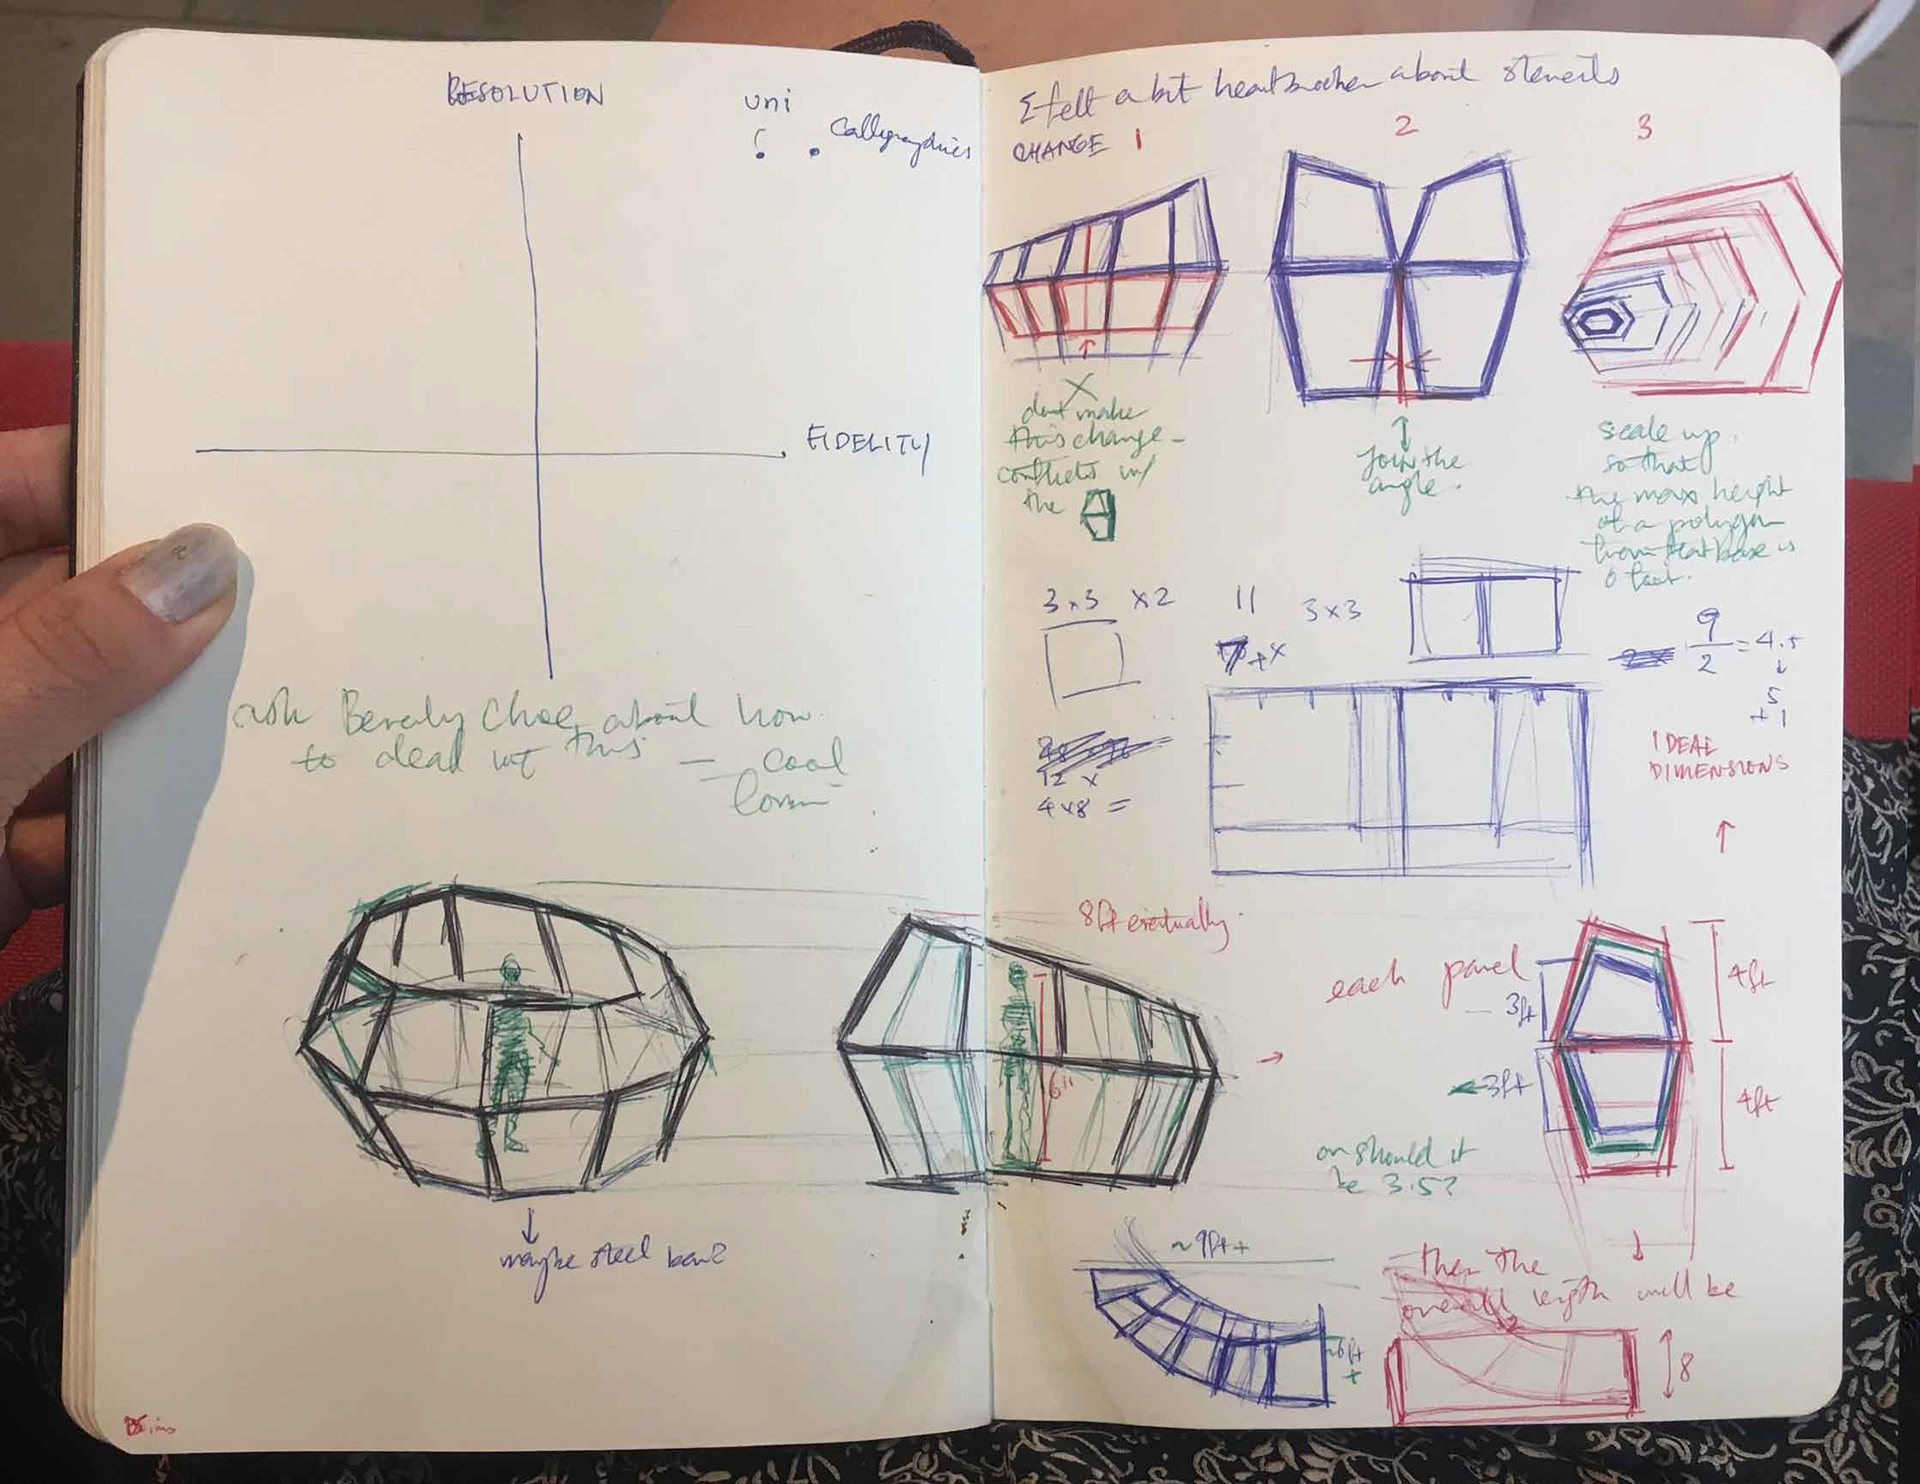 RESOLUTION
uni
Calligraphies
FIDELITY
ask Beverly Choe about how
to deal wt this — cool
form
maybe steel bar?
I felt a bit heartbroken about stencils
CHANGE 1
2
3
X
don't make
this change –
conflicts w/
the
Join the
angle.
scale up,
so that
the max height
of a polygon
from flat base is
3x3 x2
11
3x3
7+x
9
2
= 4.5
5
+1
12 x
4x8 =
IDEAL
DIMENSIONS
8ft eventually.
6"
each panel
3ft
4ft
3ft
4ft
or should it
be 3.5?
~9ft+
~6ft
+
then the
overall length will be
12
8